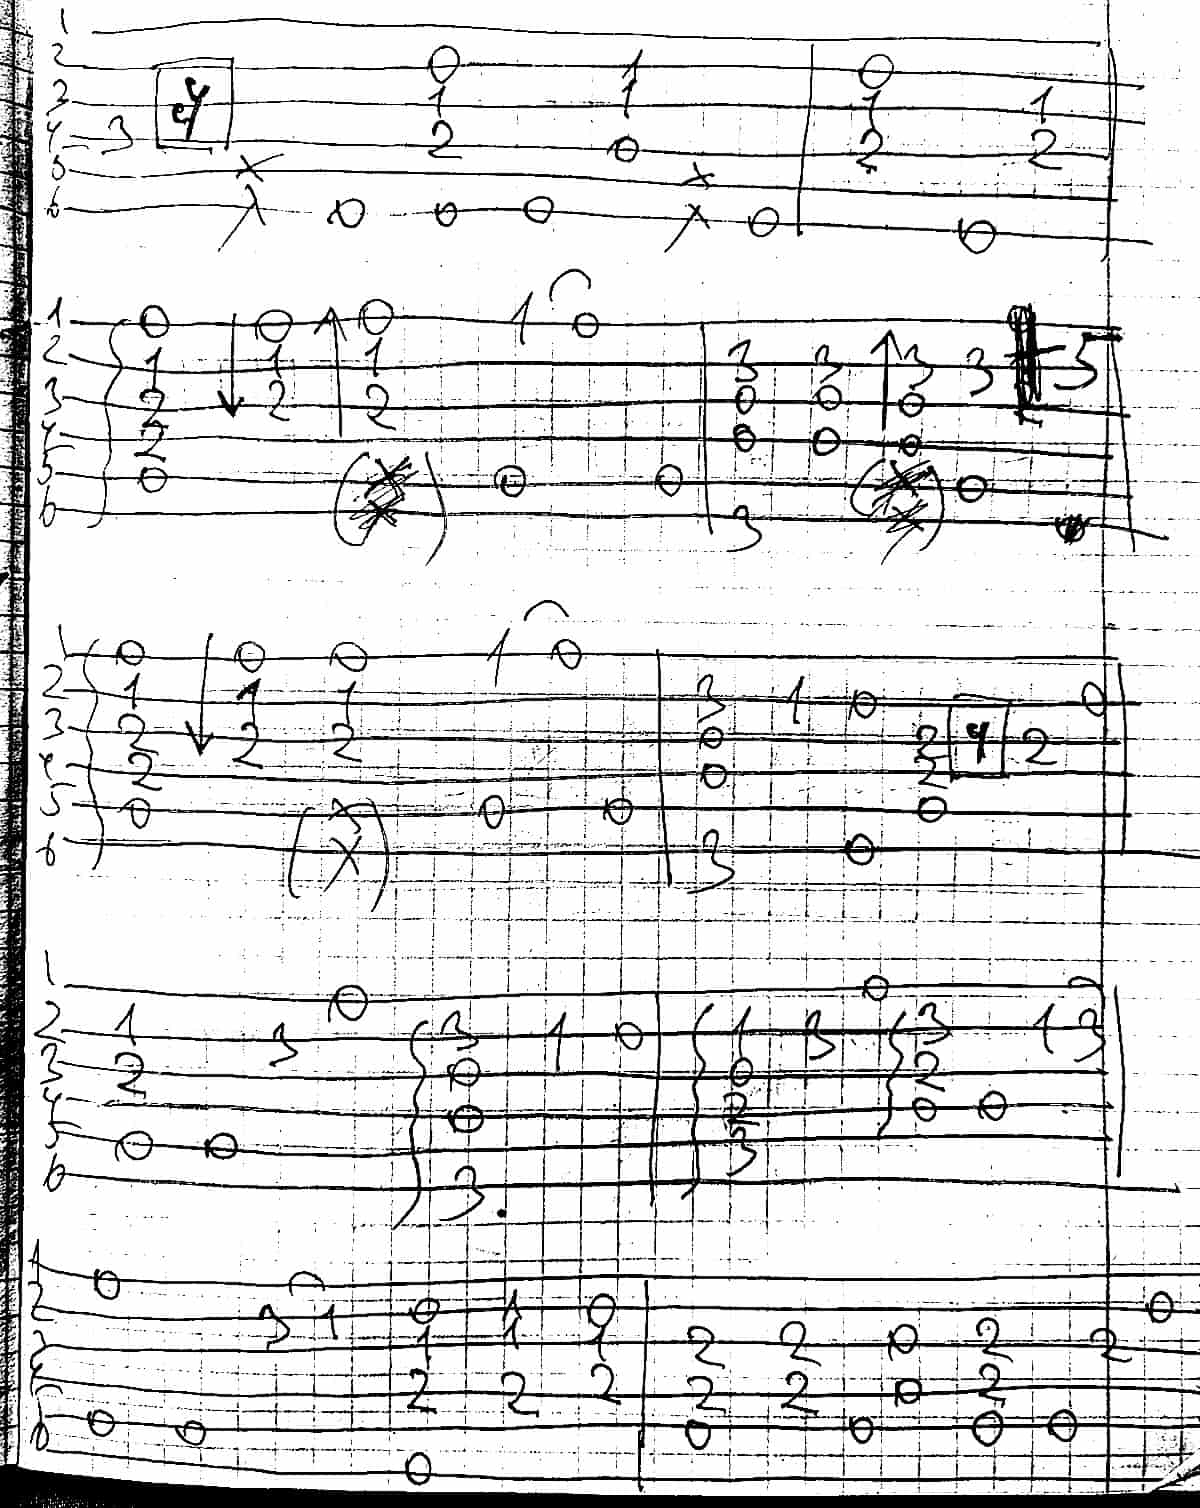 1
2 0 1 0
3 4 1 1 1 1
4 3 2 0 2 2
5 x x
6 x 0 0 0 x 0 0
1 0 0 0 1 0
2 1 1 1 3 3 3 3 5
3 2 2 2 0 0 0
4 2 0 0 0
5 0 0 0 0
6 3
1 0 0 0 1 0
2 1 1 1 3 1 0 0
3 2 2 2 0 2 4 2
4 2 0 2
5 0 x 0 0 0
6 x 3 0
1 0 0
2 1 3 3 1 0 1 3 3 1 3
3 2 0 0 2
4 0 2 0 0
5 0 0 3
6 3.
1 0
2 3 1 0 1 0 0
3 1 1 1 2 2 0 2 2
4 2 2 2 2 2 0 2
5 0 0 0 0 0 0
6 0